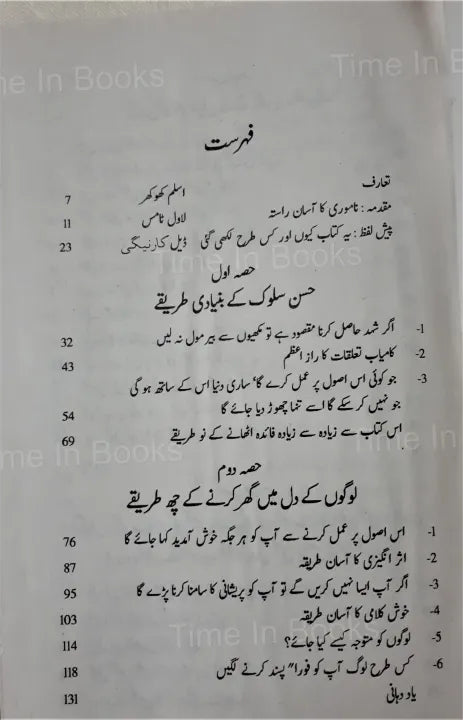 Time In Books
Time In B
فہرست
تعارف اسلم کھوکھر 7
مقدمہ : ناموری کا آسان راستہ لاول ٹامس 11
پیش لفظ : یہ کتاب کیوں اور کس طرح لکھی گئی ڈیل کارنیگی 23
Time In Books
حصہ اول
حسن سلوک کے بنیادی طریقے
1- اگر شہد حاصل کرنا مقصود ہے تو مکھیوں سے بیر مول نہ لیں 32
2- کامیاب تعلقات کا راز اعظم 43
3- جو کوئی اس اصول پر عمل کرے گا، ساری دنیا اس کے ساتھ ہو گی
جو نہیں کر سکے گا اسے تنہا چھوڑ دیا جائے گا 54
اس کتاب سے زیادہ سے زیادہ فائدہ اٹھانے کے نو طریقے 69
me In Books
Time In
حصہ دوم
لوگوں کے دل میں گھر کرنے کے چھ طریقے
1- اس اصول پر عمل کرنے سے آپ کو ہر جگہ خوش آمدید کہا جائے گا 76
2- اثر انگیزی کا آسان طریقہ 87
3- اگر آپ ایسا نہیں کریں گے تو آپ کو پریشانی کا سامنا کرنا پڑے گا 95
4- خوش کلامی کا آسان طریقہ 103
5- لوگوں کو متوجہ کیسے کیا جائے؟ 114
Time In Books
6- کس طرح لوگ آپ کو فورا" پسند کرنے لگیں 118
یاد دہانی 131